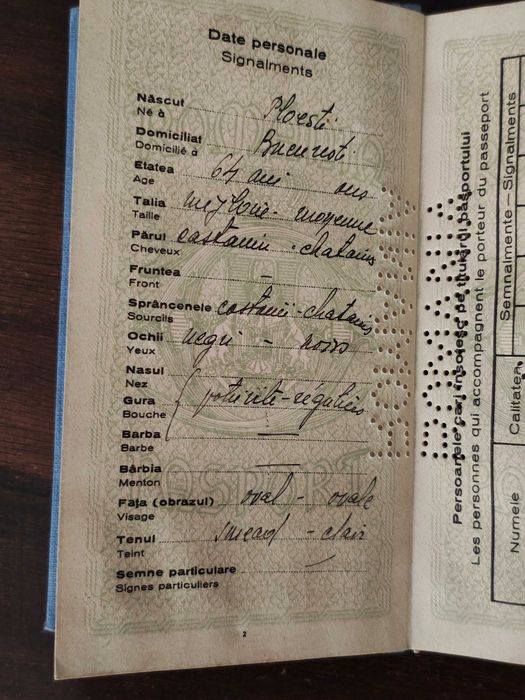 Date personale
Signalments
Născut Ploesti
Né à
Domiciliat Bucuresti
Domicilié à
Etatea 64 ani ans
Age
Talia mijlocie - moyenne
Taille
Părul castanii - chatains
Cheveux
Fruntea –
Front
Sprâncenele castanii - chatains
Sourcils
Ochii negri - noirs
Yeux
Nasul
Nez
Gura potrivite - réguliers
Bouche
Barba —
Barbe
Bărbia —
Menton
Fața (obrazul) oval - ovale
Visage
Tenul smead - clair
Teint
Semne particulare –
Signes particuliers
2
ROMANIA
Persoanele cari însoțesc pe titularul pașportului
Les personnes qui accompagnent le porteur du passeport
Semnalmente — Signalments
Calitatea
Numele
PASPORT